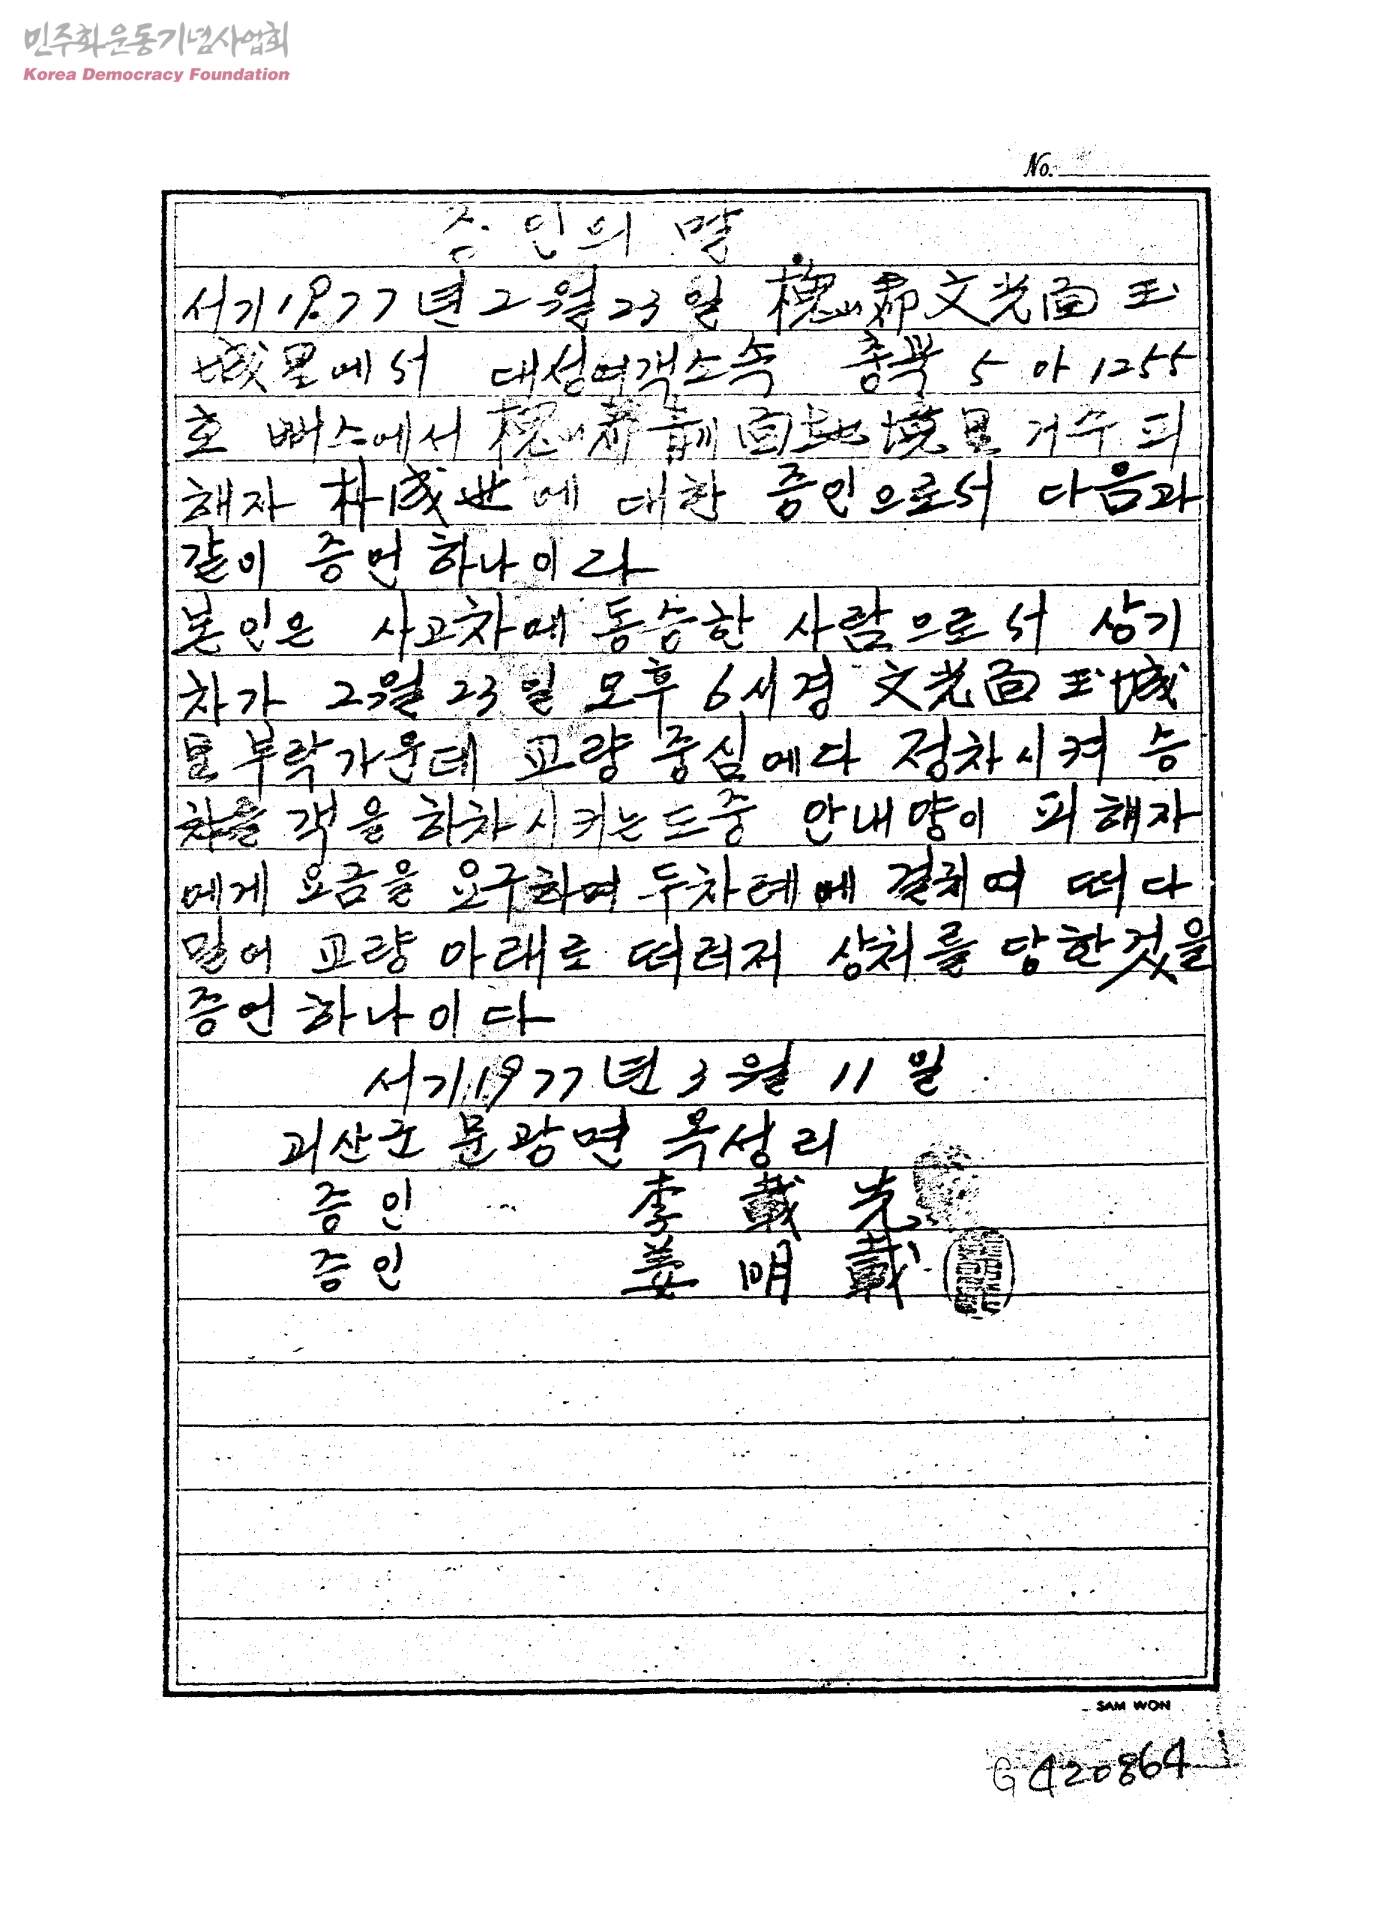 민주화운동기념사업회
Korea Democracy Foundation
No.
증인의 말
서기 1977년 2월 23일 槐山郡 文光面 玉
城里에서 대성여객소속 충북 5 아 1255
호 뻐스에서 槐山郡 面 地境里 거주 피
해자 朴成世에 대한 증인으로서 다음과
같이 증언 하나이다
본인은 사고차에 동승한 사람으로서 상기
차가 2월 23일 오후 6시경 文光面 玉城
里 부락가운데 교량 중심에다 정차시켜 승
차을 객을 하차시키는 드중 안내양이 피해자
에게 요금을 요구하며 두차례에 걸취여 떠다
밀어 교량 아래로 떠러저 상처를 당한것을
증언 하나이다
서기 1977년 3월 11일
괴산군 문광면 옥성리
증인 李載光
증인 姜明載
SAM WON
G420864